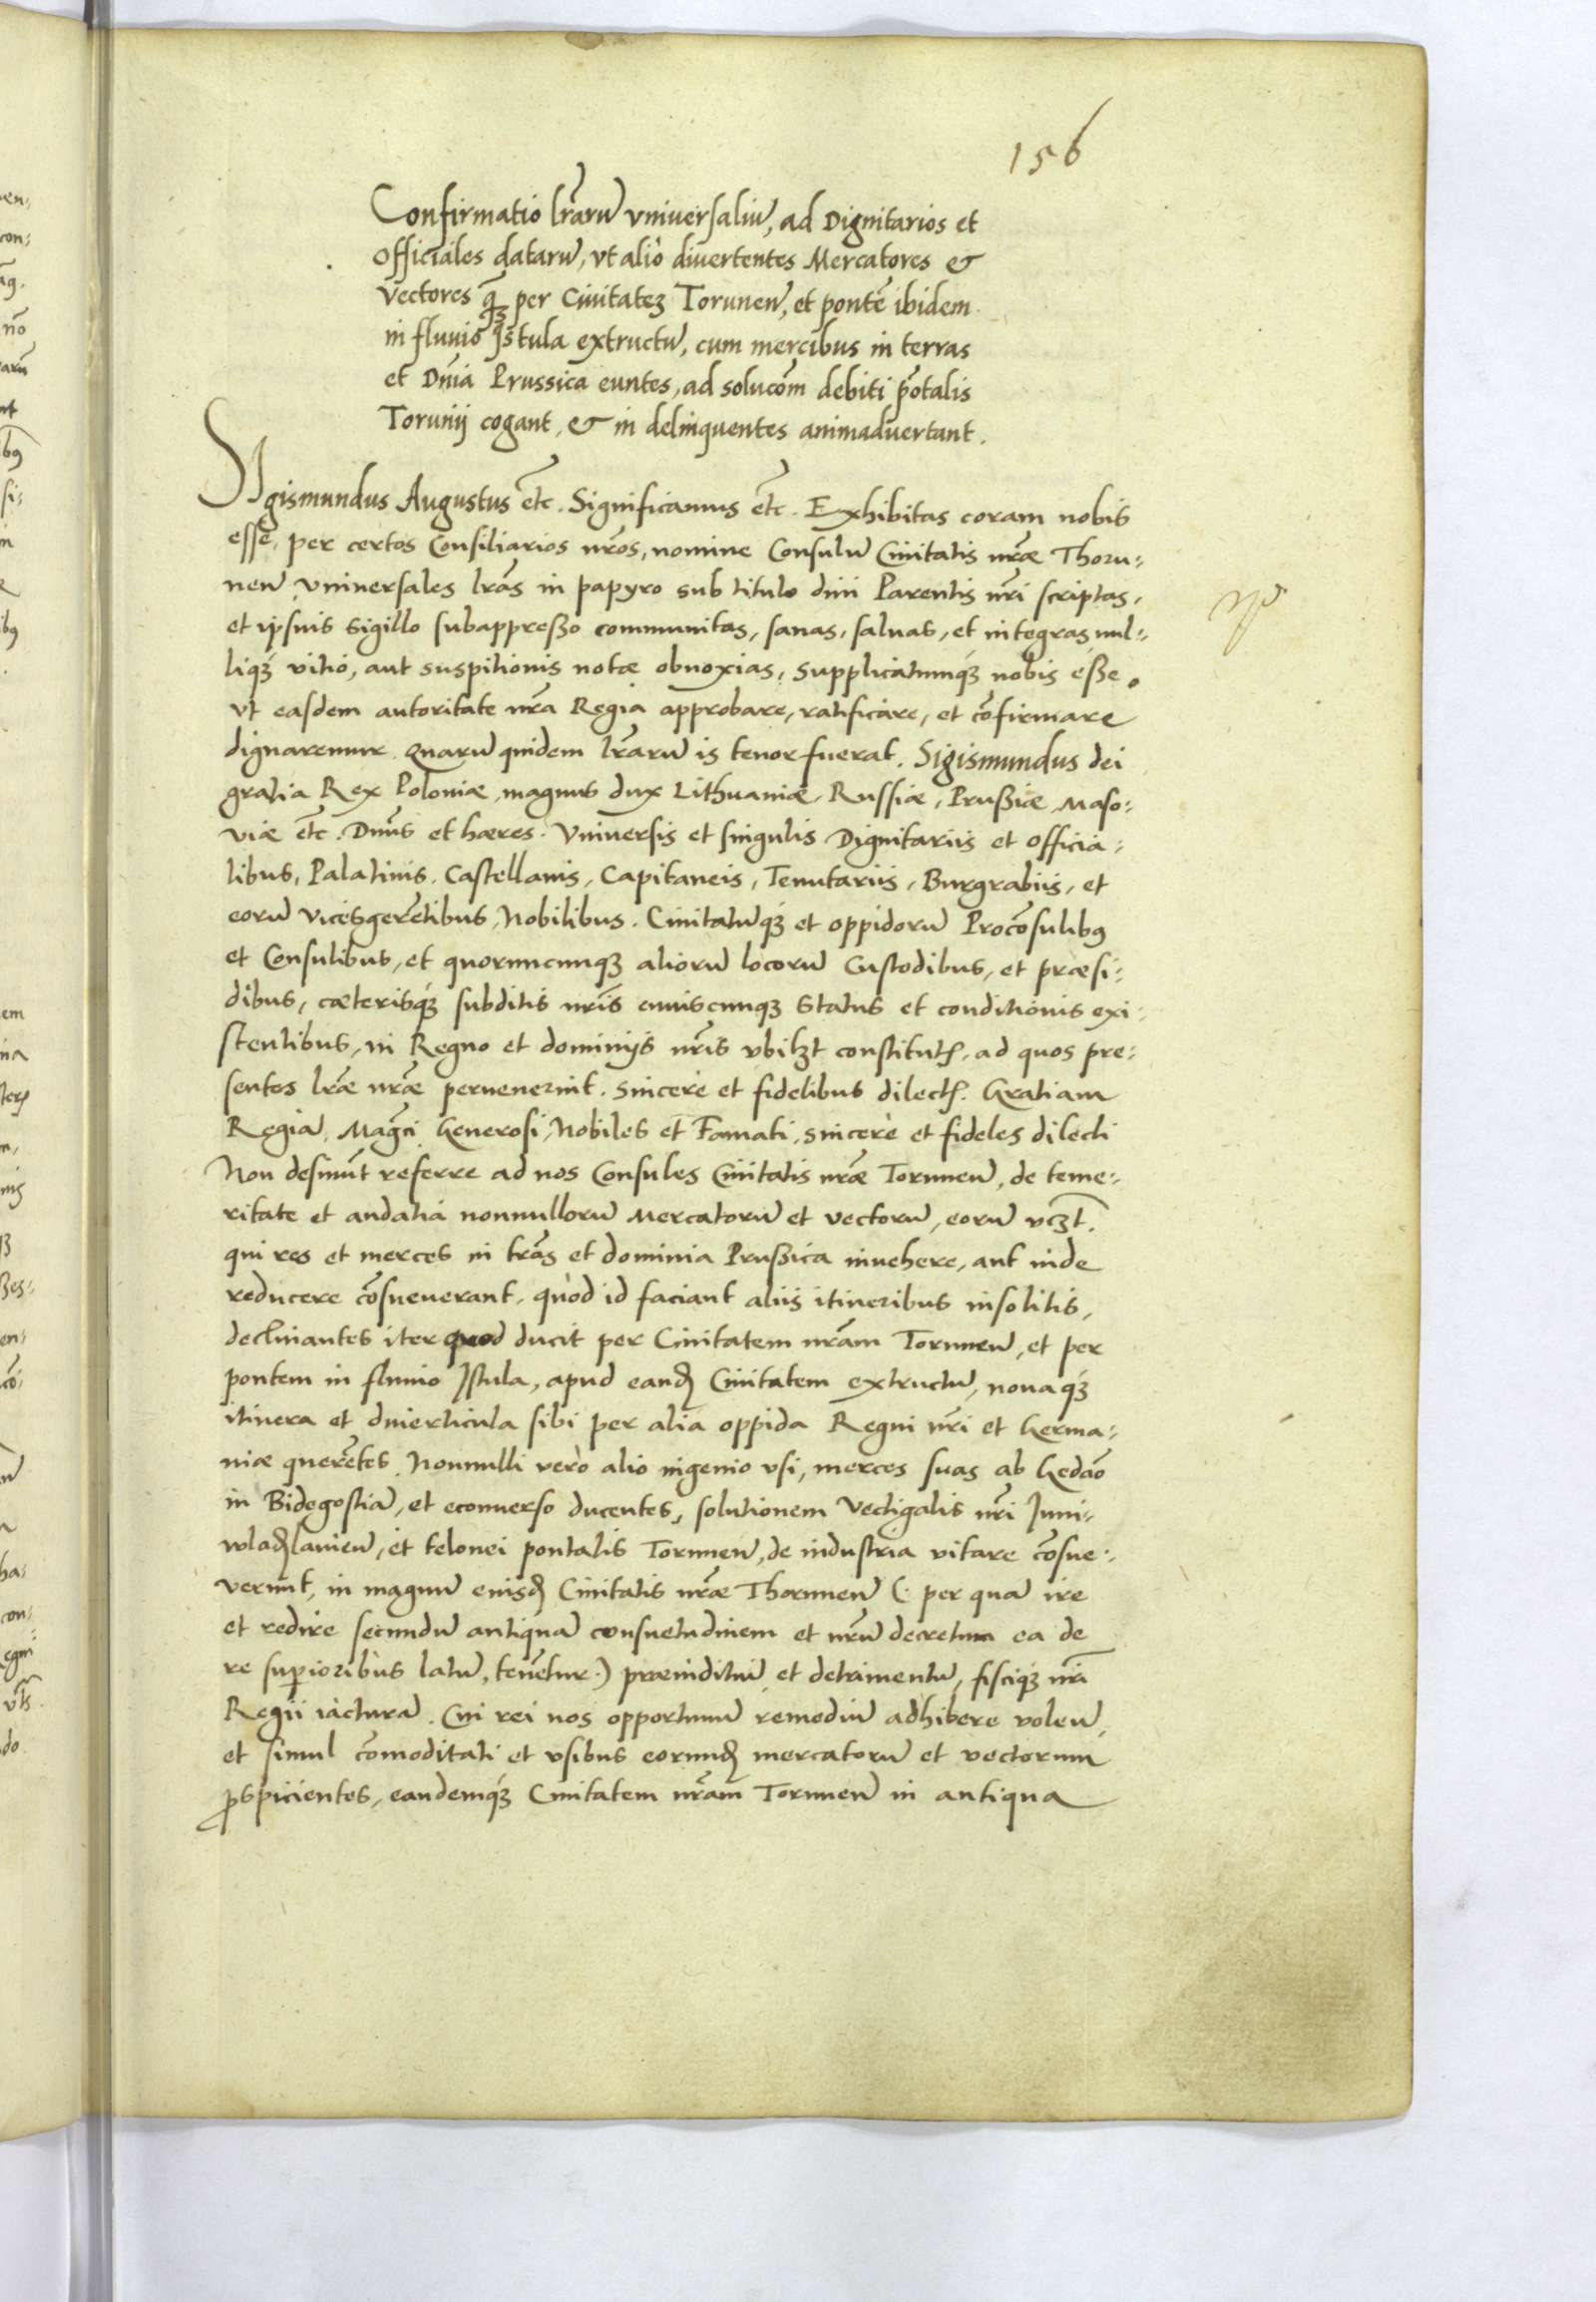 156
Confirmatio lrarũ vniuersaliũ, ad Dignitarios et
officiales datarũ, vt aliò diuertentes Mercatores &
vectores q̃ꝫ per Ciuitatez Torunen̄, et pontẽ ibidem
in fluuio Jstula extructũ, cum mercibus in terras
et Dnia Prussica euntes, ad solucõm debiti põtalis
Torunij cogant, & in delinquentes animaduertant.
Sigismundus Augustus etc. Significamus etc. Exhibitas coram nobis
esse, per certos Consiliarios nros, nomine Consulũ Ciuitatis nræ Thoru-
nen̄ vniuersales lras in papyro sub titulo diui Parentis nri scriptas,
et ipsius sigillo subappresso communitas, sanas, saluas, et integras, nul-
liqꝫ vitio, aut suspitionis notæ obnoxias, supplicatumqꝫ nobis esse,
vt easdem autoritate nra Regia approbare, ratificare, et cõfirmare
dignaremur. Quarũ quidem lrarũ is tenor fuerat. Sigismundus dei
gratia Rex Poloniæ, magnus dux Lithuaniæ, Russiæ, Prussiæ, Maso-
viæ etc. Dnus et hæres. Vniuersis et singulis Dignitariis et officia-
libus, Palatinis, Castellanis, Capitaneis, Tenutariis, Burgrabiis, et
eorũ vicesgerẽtibus, Nobilibus, Ciuitatũqꝫ et oppidorũ Procõsulibꝯ
et Consulibus, et quorumcunqꝫ aliorũ locorũ Custodibus, et præsi-
dibus, cæterisqꝫ subditis nris cuiuscunqꝫ status et conditionis exi-
stentibus, in Regno et dominijs nris vbilꝫt constitutꝭ, ad quos pre-
sentes lræ nræ peruenerint. Sincere et fidelibus dilectꝭ. Gratiam
Regiã. Magci, Generosi, Nobiles et Famati, sincerè et fideles dilecti
Non desinũt referre ad nos Consules Ciuitatis nræ Torunen̄, de teme-
ritate et audatia nonnullorũ Mercatorũ et vectorũ, eorũ vcꝫt.
qui res et merces in tras et dominia Prussica inuehere, aut inde
reducere cõsueuerant, quòd id faciant aliis itineribus insolitis,
declinantes iter quod ducit per Ciuitatem nram Torunen̄, et per
pontem in fluuio Jstula, apud eandꝫ Ciuitatem extructũ, nouaqꝫ
itinera et diuerticula sibi per alia oppida Regni nri et Germa-
niæ querẽtes. Nonnulli verò alio ingenio vsi, merces suas ab Gedão
in Bidegostiã, et econuerso ducentes, solutionem Vectigalis nri Juni-
wladꝫlauien̄, et telonei pontalis Torunen̄, de industria vitare cõsue-
verunt, in magnũ eiusdꝫ Ciuitatis nræ Thorunen̄ (: per quã ire
et redire secundũ antiquã consuetudinem et nrũ decretum ea de
re superioribus latũ, tenẽtur:) præiuditiũ et detrimentũ, fisciqꝫ nri
Regii iacturã. Cui rei nos opportunũ remediũ adhibere volen̄,
et simul cõmoditati et vsibus eorundꝫ mercatorũ et vectorum
ꝓspicientes, eandemqꝫ Ciuitatem nram Torunen̄ in antiqua